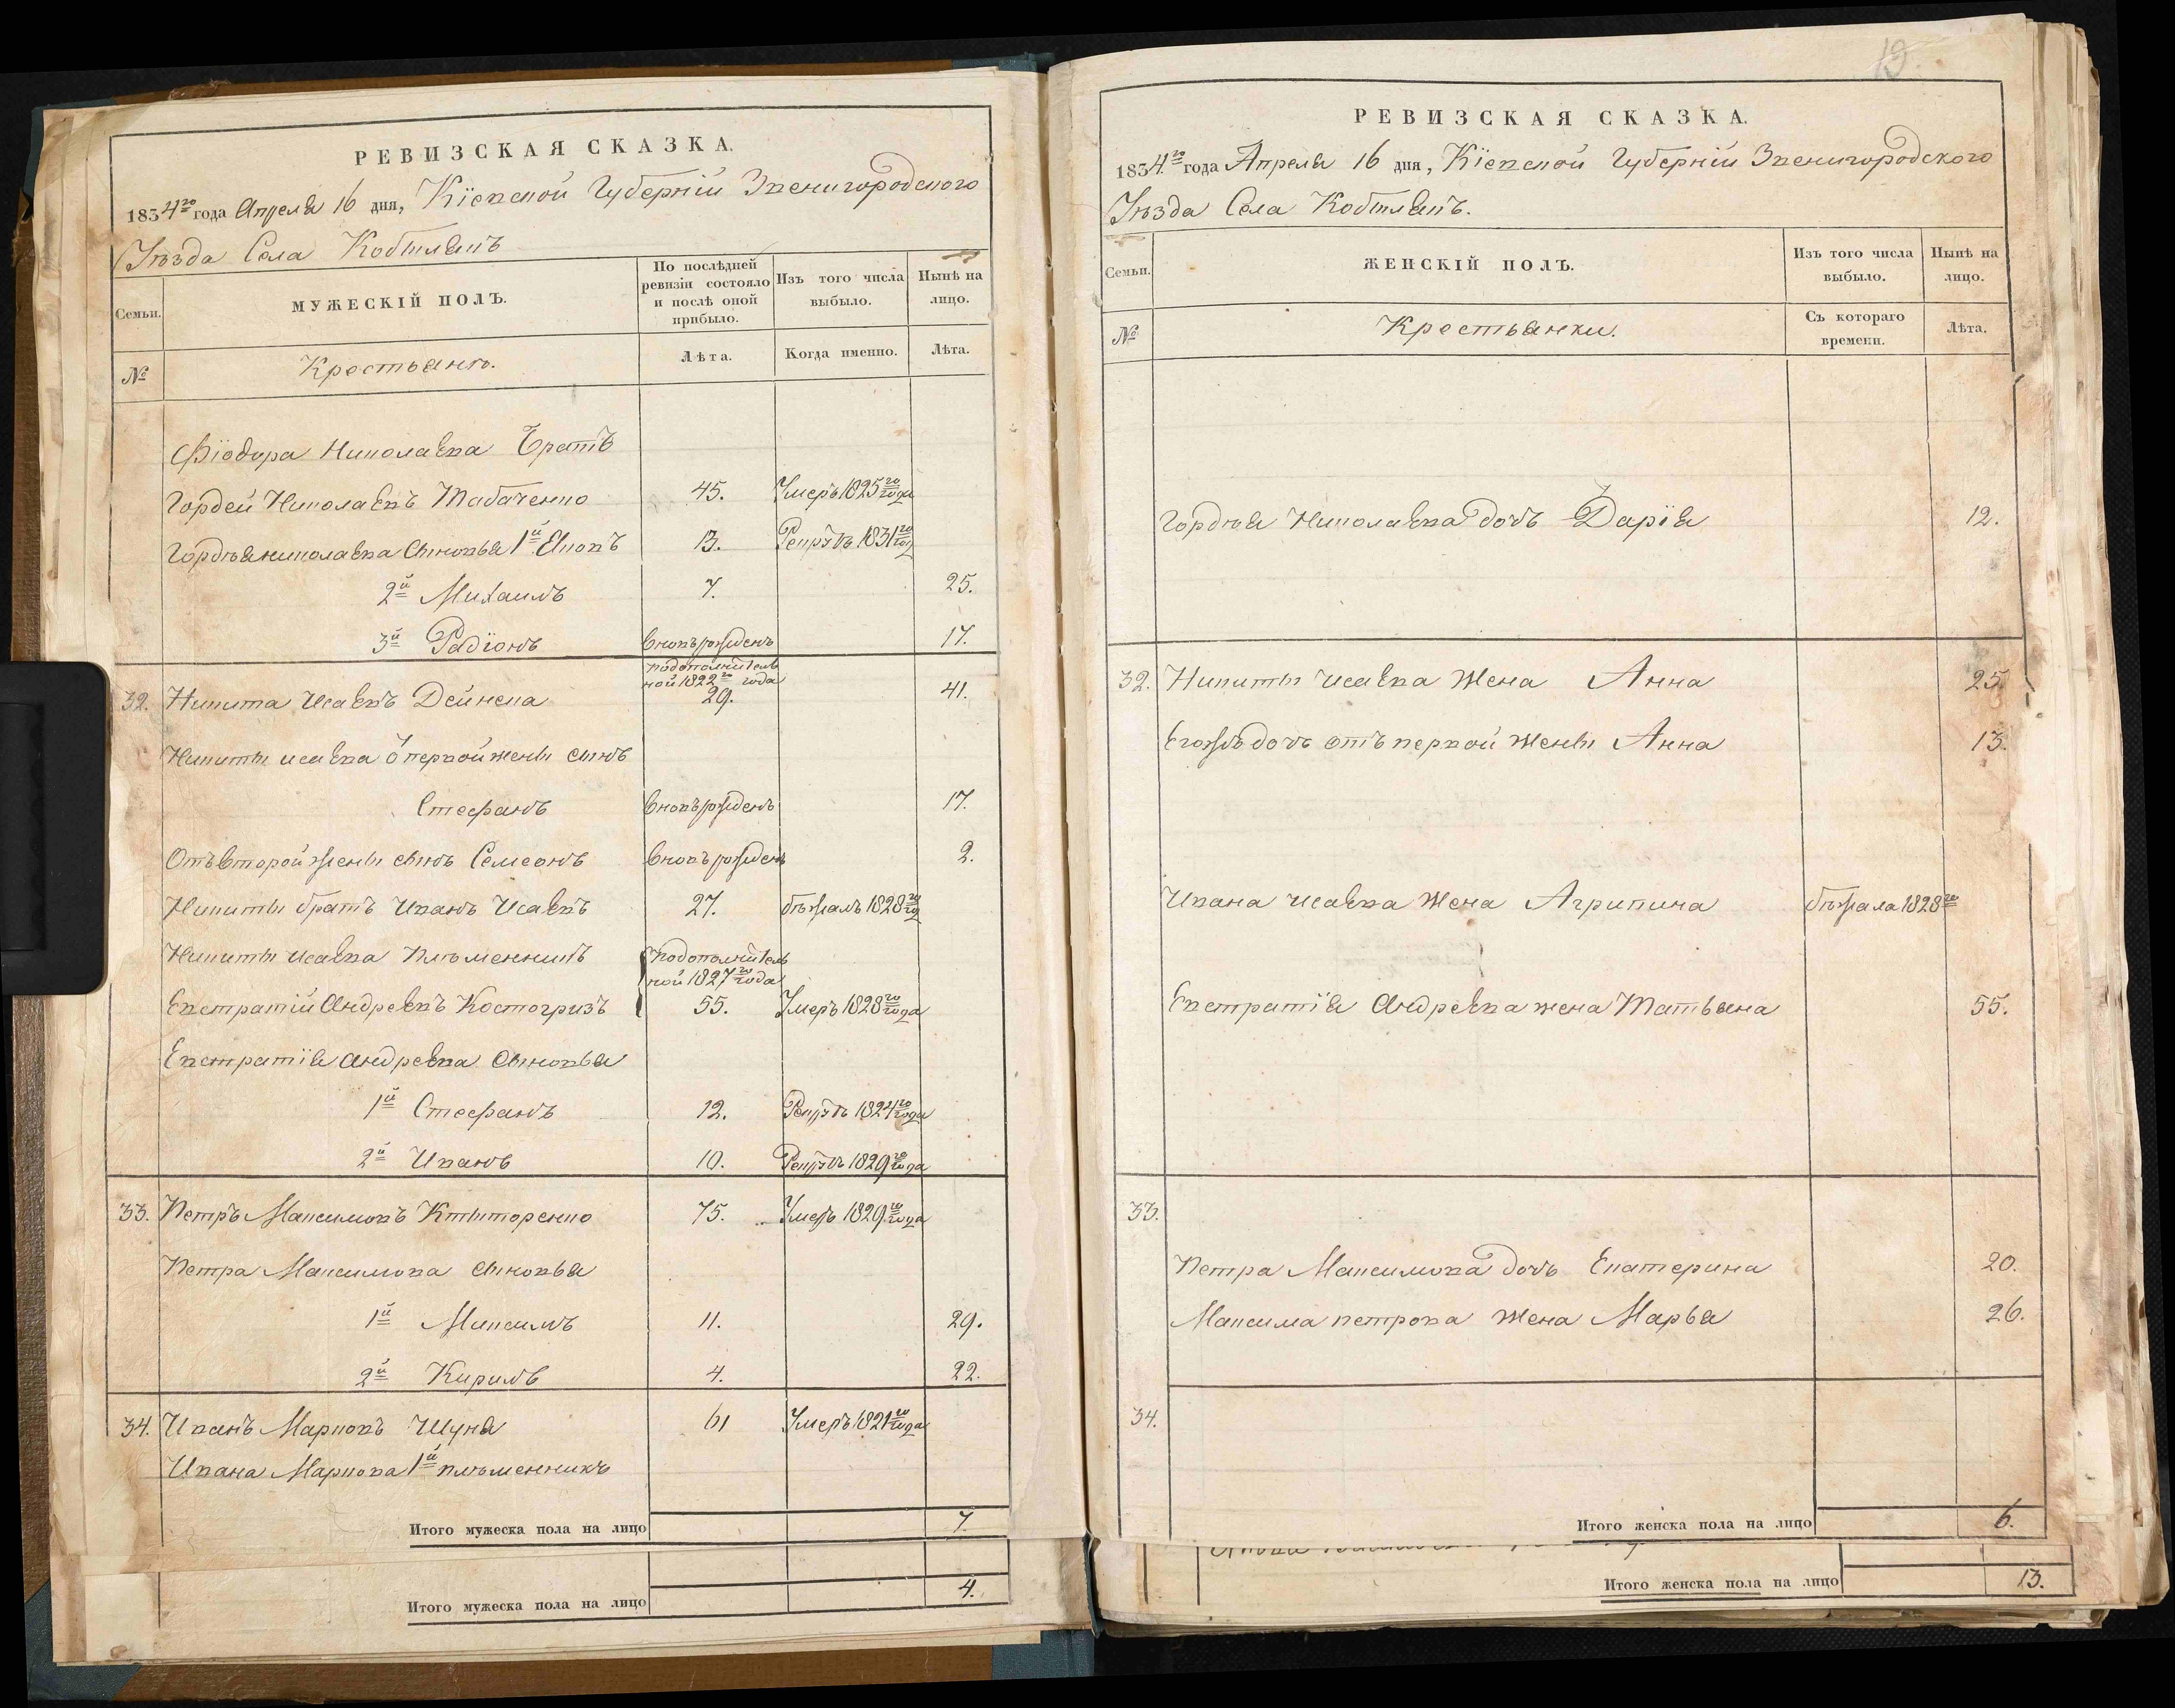 РЕВИЗСКАЯ СКАЗКА.
1834го года Апреля 16 дня, Кіевской Губерніи Звенигородского
Уезда Села
Семьи.
МУЖЕСКІЙ ПОЛЪ.
По послѣдней ревизіи состояло и послѣ оной прибыло.
Изъ того числа выбыло.
Нынѣ на лицо.
№
Крестьяне.
Лѣта.
Когда именно.
Лѣта.
Фіодора Николаева братъ
Гордей Николаевъ Табаченко 45. Умеръ 1825го года
Гордѣя николаева сыновья 1й 13. 1831го
2й Михаилъ 7. 25.
3й Радіонъ вновьрожденъ 17.
подополнитель
ной 1822го года
32. Никита Исаевъ Дейнека 29. 41.
Никиты исаева первой жены сынъ
Стефанъ вновьрожденъ 17.
Отъ второй жены сынъ Семеонъ вновьрожденъ 2.
Никиты братъ Иванъ Исаевъ 27. бѣжалъ 1828го
Никиты исаева племенникъ подополнитель
ной 1827го года
Евстратій Андреевъ Костогризъ 55. Умеръ 1828го года
Евстратія андреева сыновья
1й Стефанъ 12. 1824го года
2й Иванъ 10. 1829го года
33. Петръ Максимовъ Ктыторенко 75. Умеръ 1829го года
Петра Максимова сыновья
1й Максимъ 11. 29.
2й Кирилъ 4. 22.
34. Иванъ Марковъ 61 Умеръ 1821го года
Ивана Маркова 1й племенникъ
Итого мужеска пола на лицо 7.
Итого мужеска пола на лицо 4.
19.
РЕВИЗСКАЯ СКАЗКА.
1834го года Апреля 16 дня, Кіевской Губерніи Звенигородского
Уезда Села
Семьи.
ЖЕНСКІЙ ПОЛЪ.
Изъ того числа выбыло.
Нынѣ на лицо.
№
Крестьянки.
Съ котораго времени.
Лѣта.
Гордѣя Николаева дочь Дарія 12.
32. Никиты исаева жена Анна 25.
Егожъ дочь отъ первой жены Анна 13.
Ивана исаева жена Агрипина бѣжала 1828го
Евстратія Андреева жена Татьяна 55.
33.
Петра Максимова дочь Екатерина 20.
Максима петрова жена Марья 26.
34.
Итого женска пола на лицо 6.
Итого женска пола на лицо 13.